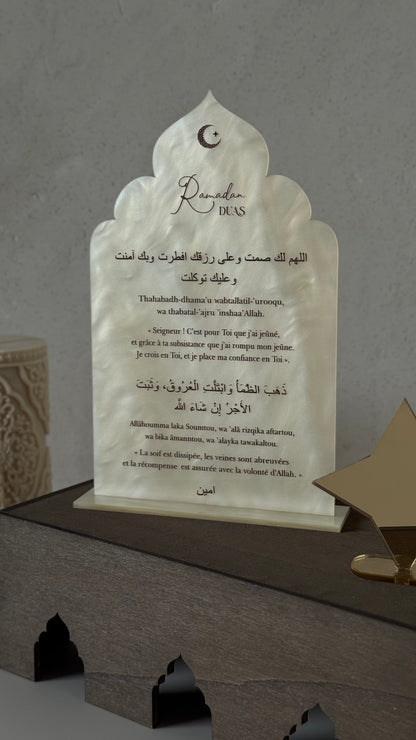 Ramadan
DUAS
اللهم لك صمت وعلى رزقك افطرت وبك آمنت
وعليك توكلت
Thahabadh-dhama'u wabtallatil-'urooqu,
wa thabatal-'ajru 'inshaa'Allah.
« Seigneur ! C'est pour Toi que j'ai jeûné,
et grâce à ta subsistance que j'ai rompu mon jeûne.
Je crois en Toi, et je place ma confiance en Toi ».
ذَهَبَ الظَّمَأُ وَابْتَلَّتِ الْعُرُوقُ، وَثَبَتَ
الأَجْرُ إِنْ شَاءَ اللَّه
Allâhoumma laka Soumtou, wa 'alâ rizqika aftartou,
wa bika âmanntou, wa 'alayka tawakaltou.
« La soif est dissipée, les veines sont abreuvées
et la récompense est assurée avec la volonté d'Allah. »
امين